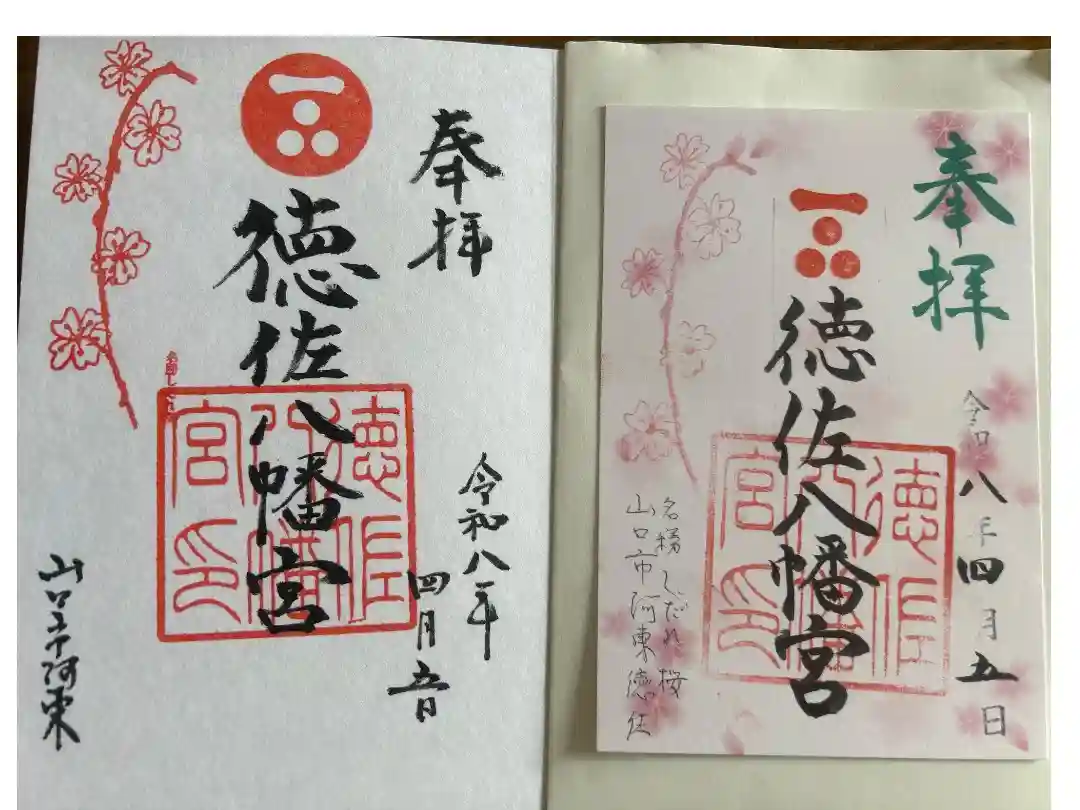 奉拝
令和八年
四月五日
徳佐八幡宮
徳佐八幡宮印
山口市阿東
奉拝
令和八年四月五日
徳佐八幡宮
徳佐八幡宮印
名勝しだれ桜
山口市阿東徳佐